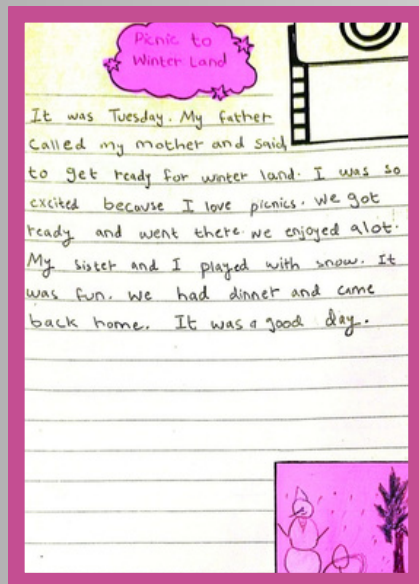 Picnic to
Winter Land
It was Tuesday. My father
called my mother and said
to get ready for winter land. I was so
excited because I love picnics. we got
ready and went there. we enjoyed alot.
My sister and I played with snow. It
was fun. we had dinner and came
back home. It was a good day.